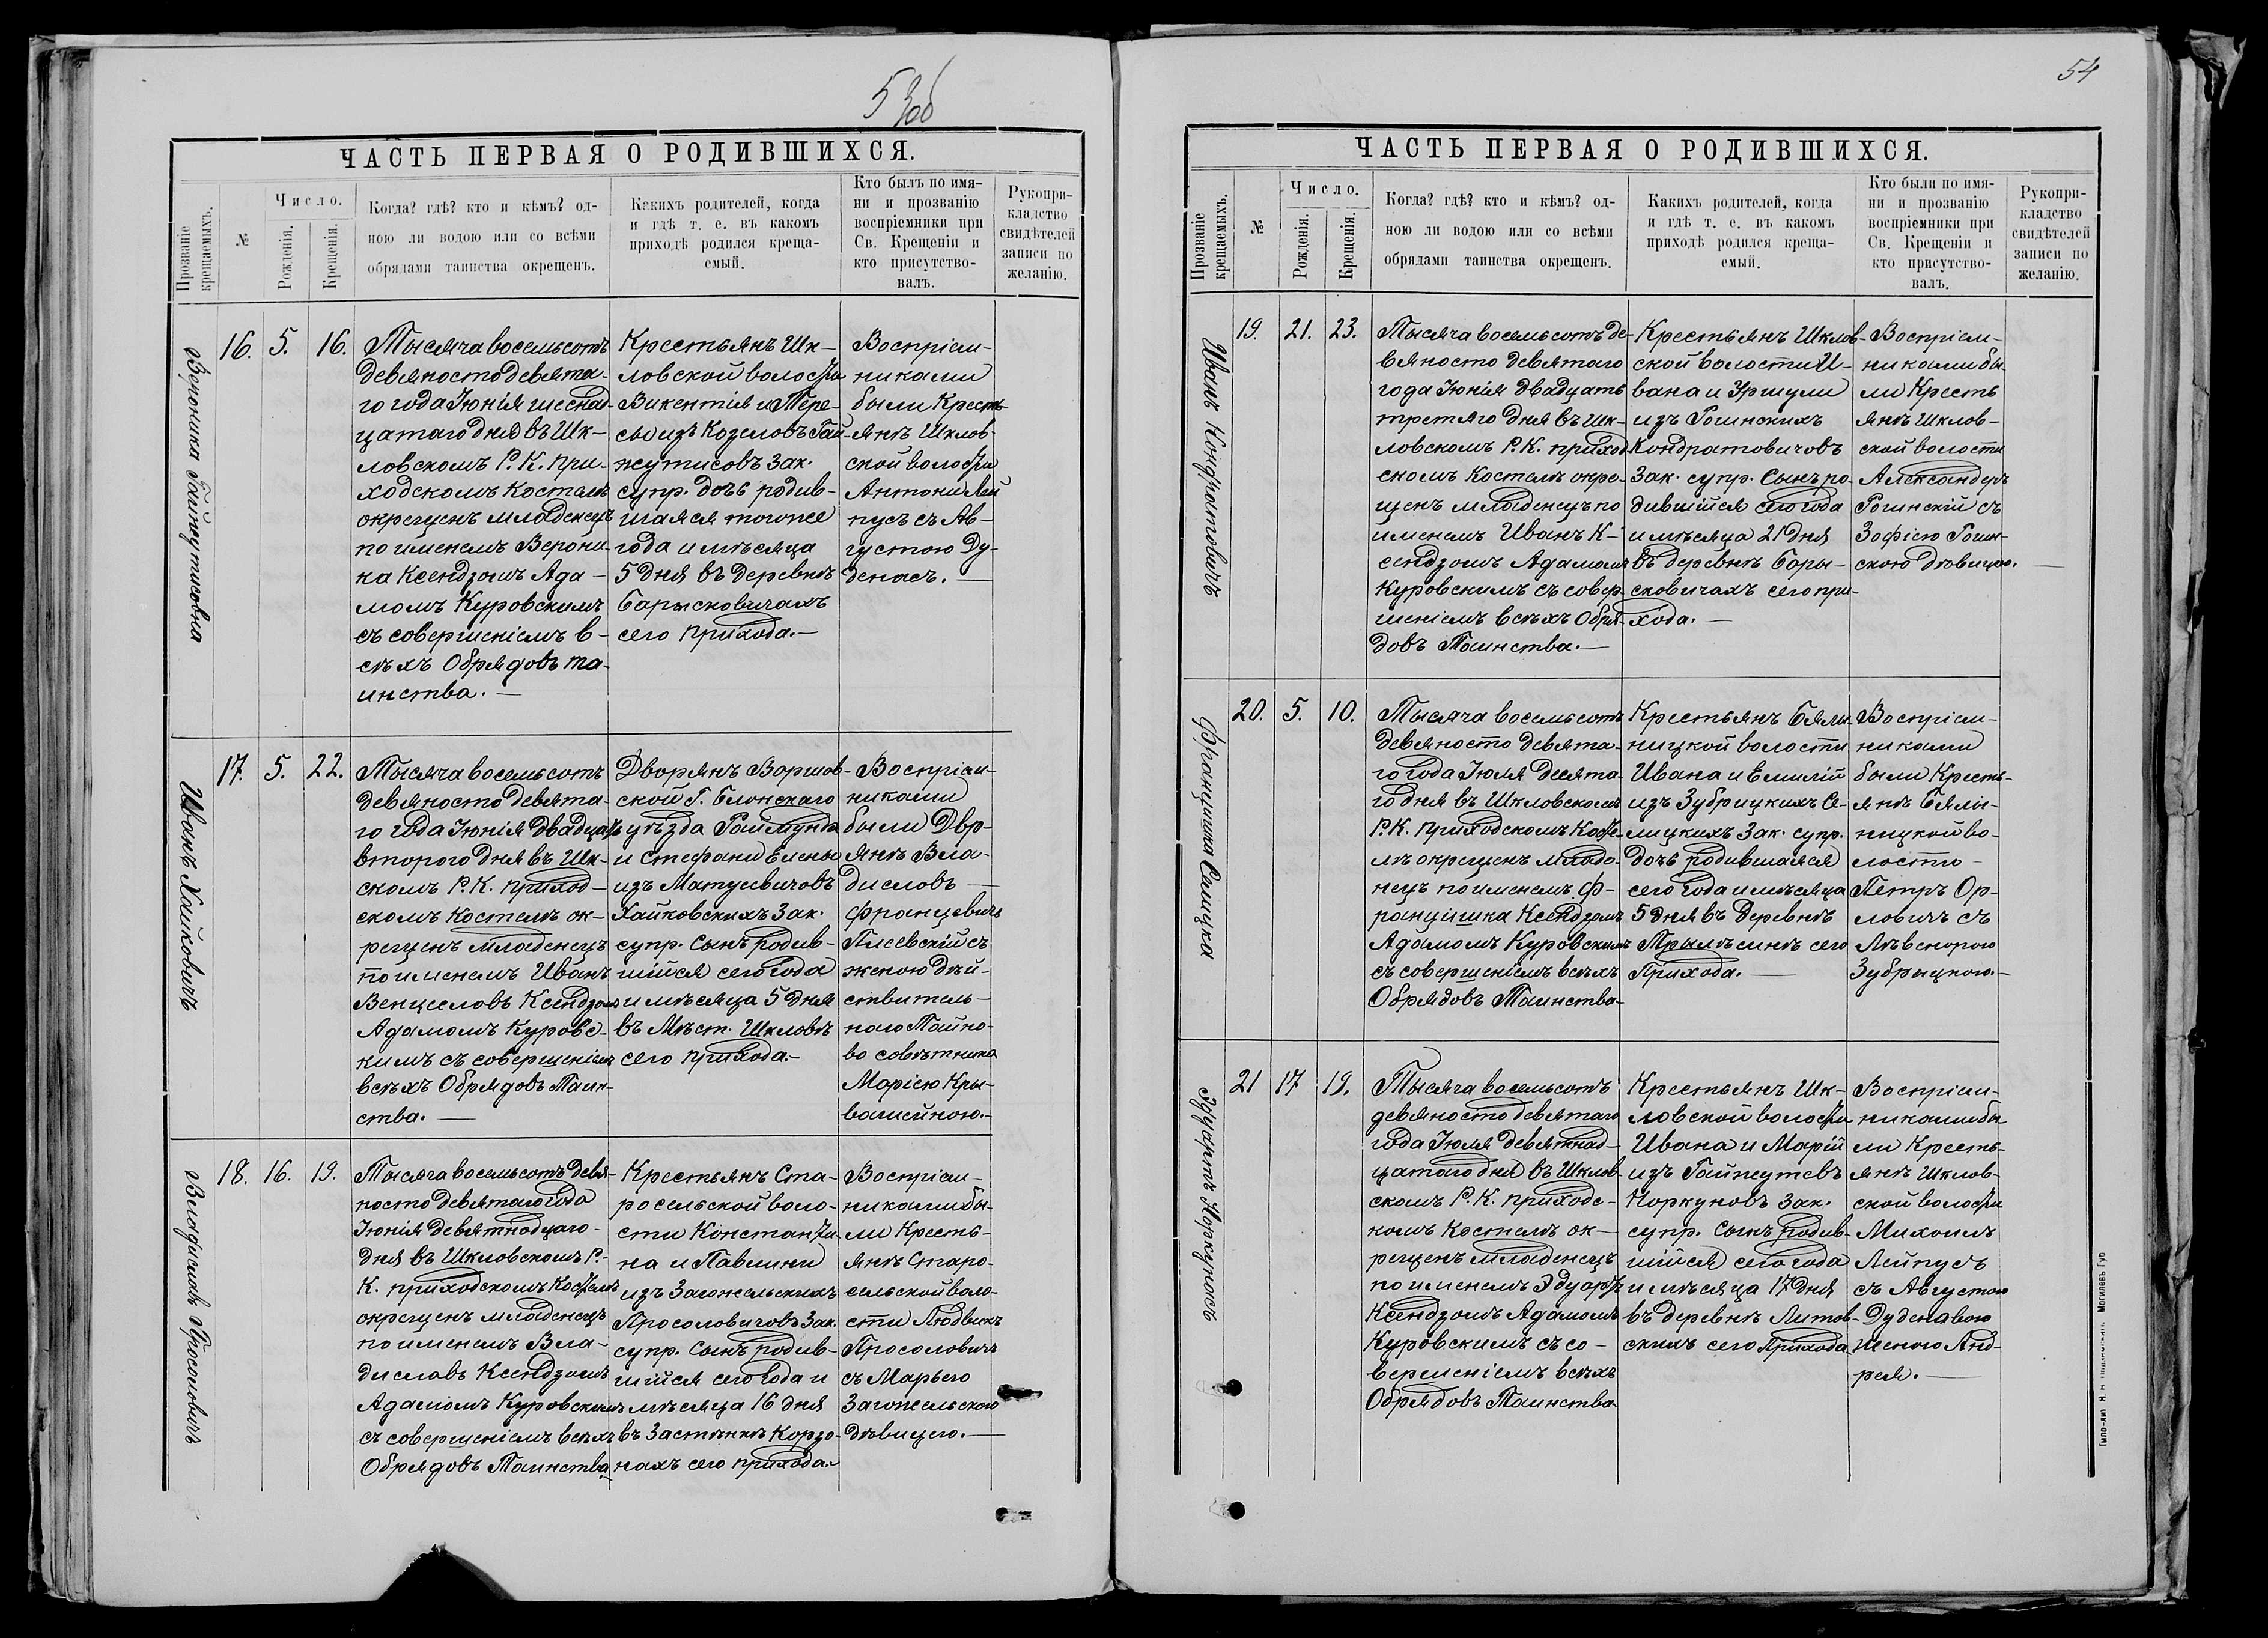 53об
ЧАСТЬ ПЕРВАЯ О РОДИВШИХСЯ.
Прозваніе крещаемыхъ.
№
Число.
Рожденія.
Крещенія.
Когда? гдѣ? кто и кѣмъ? од-
ною ли водою или со всѣми
обрядами таинства окрещенъ.
Какихъ родителей, когда
и гдѣ т. е. въ какомъ
приходѣ родился креща-
емый.
Кто былъ по имя-
ни и прозванію
воспріемники при
Св. Крещеніи и
кто присутство-
валъ.
Рукопри-
кладство
свидѣтелей
записи по
желанію.
Вероника Гайжутисовна
16. 5. 16.
Тысяча восемьсотъ
девяносто девята-
го года Іюнія шеснад-
цатаго дня въ Шк-
ловскомъ Р. К. при-
ходскомъ костелѣ
окрещенъ младенецъ
по именемъ Верони-
ка Ксендзомъ Ада-
момъ Куровскимъ
съ совершеніемъ в-
сѣхъ Обрядовъ та-
инства.—
Крестьянъ Шк-
ловской волости
Викентія и Тере-
сы изъ Козеловъ Гай-
жутисовъ зак.
супр. дочь родив-
шаяся тогоже
года и мѣсяца
5 дня въ деревнѣ
Барысковичахъ
сего прихода.—
Воспріем-
никами
были Кресть-
янѣ Шклов-
ской волости
Антони Лей
пусъ съ Ав-
густою Ду-
денасъ.—
Иванъ Хайковичъ
17. 5. 22.
Тысяча восемьсотъ
девяносто девята-
го года Іюнія двадцать
второго дня въ Шк-
скомъ Р. К. приход-
скомъ костелѣ ок-
рещенъ младенецъ
по именемъ Иванъ
Венцесловъ Ксендзомъ
Адамомъ Куровс-
кимъ съ совершеніемъ
всѣхъ Обрядовъ Таин-
ства.—
Дворянъ Варшов-
ской Г. Блонскаго
уѣзда Раймунда
и Стефани Елены
изъ Матусвичовъ
Хайковскихъ Зак.
супр. Сынъ родив-
шійся сего года
и мѣсяца 5 дня
въ Мѣст. Шкловѣ
сего прихода.—
Воспріем-
никами
были Двр-
янѣ Вла-
дисловъ—
Францевичъ
Плеевскій съ
женою Дѣй-
ствитель-
наго Тайно-
во совѣтника
Маріею Кры-
вошейною.—
Владиславъ Просоловичъ
18. 16. 19.
Тысяча восемьсотъ девя-
носто девятаго года
Іюнія девятнодцаго-
дня въ Шкловскомъ Р.-
К. приходскомъ костелѣ
окрещенъ младенецъ
по именемъ Вла-
диславъ Ксендзомъ
Адамомъ Куровскимъ
съ совершеніемъ всѣхъ
Обрядовъ Таинства
Крестьянъ Ста-
росельской воло-
сти Константи-
на и Павлини
изъ Загожельскихъ
Просоловичовъ Зак.
супр. Сынъ родив-
шійся сего года и
мѣсяца 16 дня
въ Застѣнкѣ Корзо-
нахъ сего прихода.—
Воспріем-
никами бы-
ли Кресть-
янѣ Старо-
сельской воло-
сти Людвикъ
Просоловичъ
съ Марьего
Загожельского
дѣвицего.—
54
ЧАСТЬ ПЕРВАЯ О РОДИВШИХСЯ.
Прозваніе крещаемыхъ.
№
Число.
Рожденія.
Крещенія.
Когда? гдѣ? кто и кѣмъ? од-
ною ли водою или со всѣми
обрядами таинства окрещенъ.
Какихъ родителей, когда
и гдѣ т. е. въ какомъ
приходѣ родился креща-
емый.
Кто были по имя-
ни и прозванію
воспріемники при
Св. Крещеніи и
кто присутство-
валъ.
Рукопри-
кладство
свидѣтелей
записи по
желанію.
Иванъ Кондратовичъ
19. 21. 23.
Тысяча восемьсотъ де-
вяносто девятого
года Іюнія двадцать
третяго дня въ Шк-
ловскомъ Р. К. приход
скомъ костелѣ окре-
щенъ младенецъ по
именемъ Иванъ К-
сендзомъ Адамомъ
Куровскимъ съ совер
шеніемъ всѣхъ Обря-
довъ Таинства.—
Крестьянъ Шклов-
ской волости И-
вана и Уршули
изъ Рогинскихъ
Кондратовичовъ
Зак. супр. Сынъ ро-
дившійся сего года
и мѣсяца 21 дня
въ деревнѣ Бары-
сковичахъ сего при-
хода.—
Воспріем-
никами бы
ли Кресть
янѣ Шклов-
ской волости
Александеръ
Рогинскій съ
Зофіею Рогин-
скою дѣвицею.
Францишка Силицка
20. 5. 10.
Тысяча восемьсотъ
девяносто девята-
го года Іюля десята-
го дня въ Шкловскомъ
Р. К. Приходскомъ Косте-
лѣ окрещенъ младе-
нецъ по именемъ Ф-
ранцішка Ксендзомъ
Адамомъ Куровскимъ
съ совершеніемъ всѣхъ
Обрядовъ Таинства-
Крестьянъ Бялы-
ницкой волости
Ивана и Емилій
изъ Зубрицкихъ Се-
лицкихъ Зак. супр.
дочь родившаяся
сего года и мѣсяца
5 дня въ деревнѣ
Трылѣсинѣ сего
Прихода.—
Воспріем-
никами
были Кресть-
янѣ Бялы-
ницкой во-
лости—
Петръ Ор-
ловичъ съ
Зубрыцкого.—
Эдуартъ Норкунасъ
21 17 19.
Тысяча восемьсотъ
девяносто девятаго
года Іюля девятнад-
цатого дня въ Шклов-
скомъ Р. К. приходс-
комъ Костелѣ ок-
рещенъ младенецъ
по именемъ Эдуартъ
Ксендзомъ Адамомъ
Куровскимъ съ со-
вершеніемъ всѣхъ
Обрядовъ Таинства
Крестьянъ Шк-
ловской волости
Ивана и Марій
изъ Гайжутевъ
Норкуновъ Зак.
супр. Сынъ родив-
шійся сего года
и мѣсяца 17 дня
въ деревнѣ Литов-
скихъ сего Прихода
Воспріем-
никами бы
ли Кресть-
янѣ Шклов-
ской волости
Михоилъ
Лейпусъ
съ Августою
Дуденавою
женого Анд-
рея.—